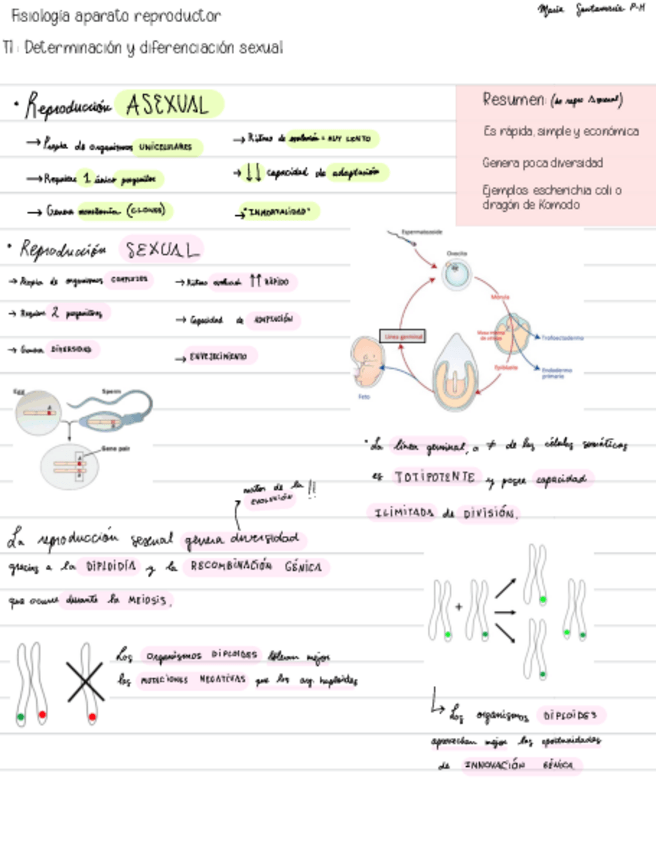 Fisiología aparato reproductor
María Santamaría P-H
T1: Determinación y diferenciación sexual
• Reproducción ASEXUAL
→ Propia de organismos UNICELULARES
→ Requiere 1 único progenitor
→ Genera (CLONES)
→ Ritmo de evolución: MUY LENTO
→ ↓↓ capacidad de adaptación
→ "INMORTALIDAD"
Resumen (de repro Asexual)
Es rápida, simple y económica
Genera poca diversidad
Ejemplos escherichia coli o
dragón de Komodo
• Reproducción SEXUAL
→ Propia de organismos COMPLEJOS
→ Requiere 2 progenitores
→ Genera DIVERSIDAD
→ Ritmo evolución ↑↑ RÁPIDO
→ Capacidad de ADAPTACIÓN
→ ENVEJECIMIENTO
Espermatozoide
Ovocito
Mórula
Masa interna
de células
Trofoectodermo
Endodermo
primario
Epiblasto
Línea germinal
Feto
Egg
Sperm
Gene pair
• La línea germinal, a ≠ de las células somáticas
es TOTIPOTENTE y posee capacidad
ILIMITADA de DIVISIÓN.
motor de la
EVOLUCIÓN !!
La reproducción sexual genera diversidad
gracias a la DIPLOIDÍA y la RECOMBINACIÓN GÉNICA
que ocurre durante la MEIOSIS.
+
Los ORGANISMOS DIPLOIDES toleran mejor
las MUTACIONES NEGATIVAS que los org. haploides
Los organismos DIPLOIDES
aprovechan mejor las oportunidades
de INNOVACIÓN GÉNICA